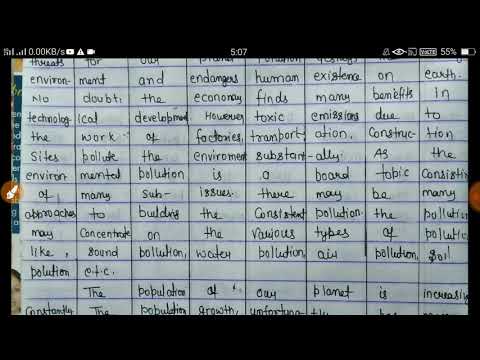 0.00KB/s 5:07 55%
threats for our planet
environ- ment and endangers human existence on earth.
No doubt. the economy finds many benefits in
technolog ical development. However toxic emissions due to
the work of factories, tranport- ation. Construc- tion
sites pollute the enviroment substant- ally. As the
environ mental pollution is a board topic Consistin
of many sub- issues. there may be many
approaches to building the Consistent pollution. the pollution
may Concentrate on the various types of pollution
like, sound pollution, water pollution, air pollution, soil
polution e.t.c.
The population of our planet is increasin
Constantly The population growth, unfortuna-